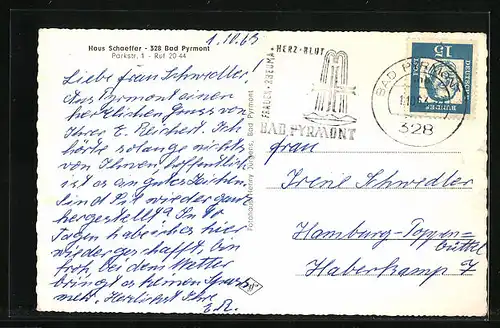 Haus Schaeffer - 328 Bad Pyrmont
Parkstr. 1 - Ruf 20 44
1.10.63
Liebe Frau Schwedler!
Aus Pyrmont einen
herzlichen Gruss von
Ihrer E. Reichert. Ich
hörte solange nichts
von Ihnen, hoffentlich
ist es ein gutes Zeichen
und Sie wieder ganz
hergestellt? In 10
Tagen habe ich es hier
wieder geschafft, bin
froh, bei dem Wetter
bringt es keinen Spass
mehr. Herzlichst Ihre
E.R.
FRAUEN · RHEUMA · HERZ · BLUT
BAD PYRMONT
BAD PYRMONT
328
15
DEUTSCHE
Bad Pyrmont
Frau
Irene Schwedler
Hamburg-Poppen=
büttel
Haberkamp 7